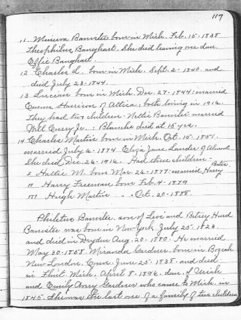 117
11. Minerva Banister born in Mich. Feb. 15 - 1838.
Theophilus Banghart. She died leaving one dau.
Effie Banghart.
12. Charles H. born in Mich. Sept. 2 - 1840. and
died July 23 - 1864.
13. born in Mich. Dec. 27 - 1844. married
Emma Harrison of Attica, both living in 1912.
They had two children: Nettie Banister married
Jr. Blanche died at 15 yrs.
14. Charles Martin born in Mich. Oct. 15 - 1851.
married July 2 - 1874. Eliza Jane Lander of Almont
She died Dec. 26 - 1912. Had three children:
Hattie M. born Mar. 26 - 1877. married Harry
Harry Freeman born Feb. 4 - 1879
Hugh Martin " Oct. 29 - 1888.
Philetus Banister, son of Levi and Betsey Hurd
Banister was born in New York, July 25 - 1824.
and died in Dryden Aug. 20 - 1880. He married
May 30 - 1848. Miranda Gardner, born in
New London, Conn. June 25 - 1828. and died
in Flint Mich. April 8 - 1896. dau. of
and Emily Avery Gardner who came to Mich. in
1845. She was the last one of a family of five children